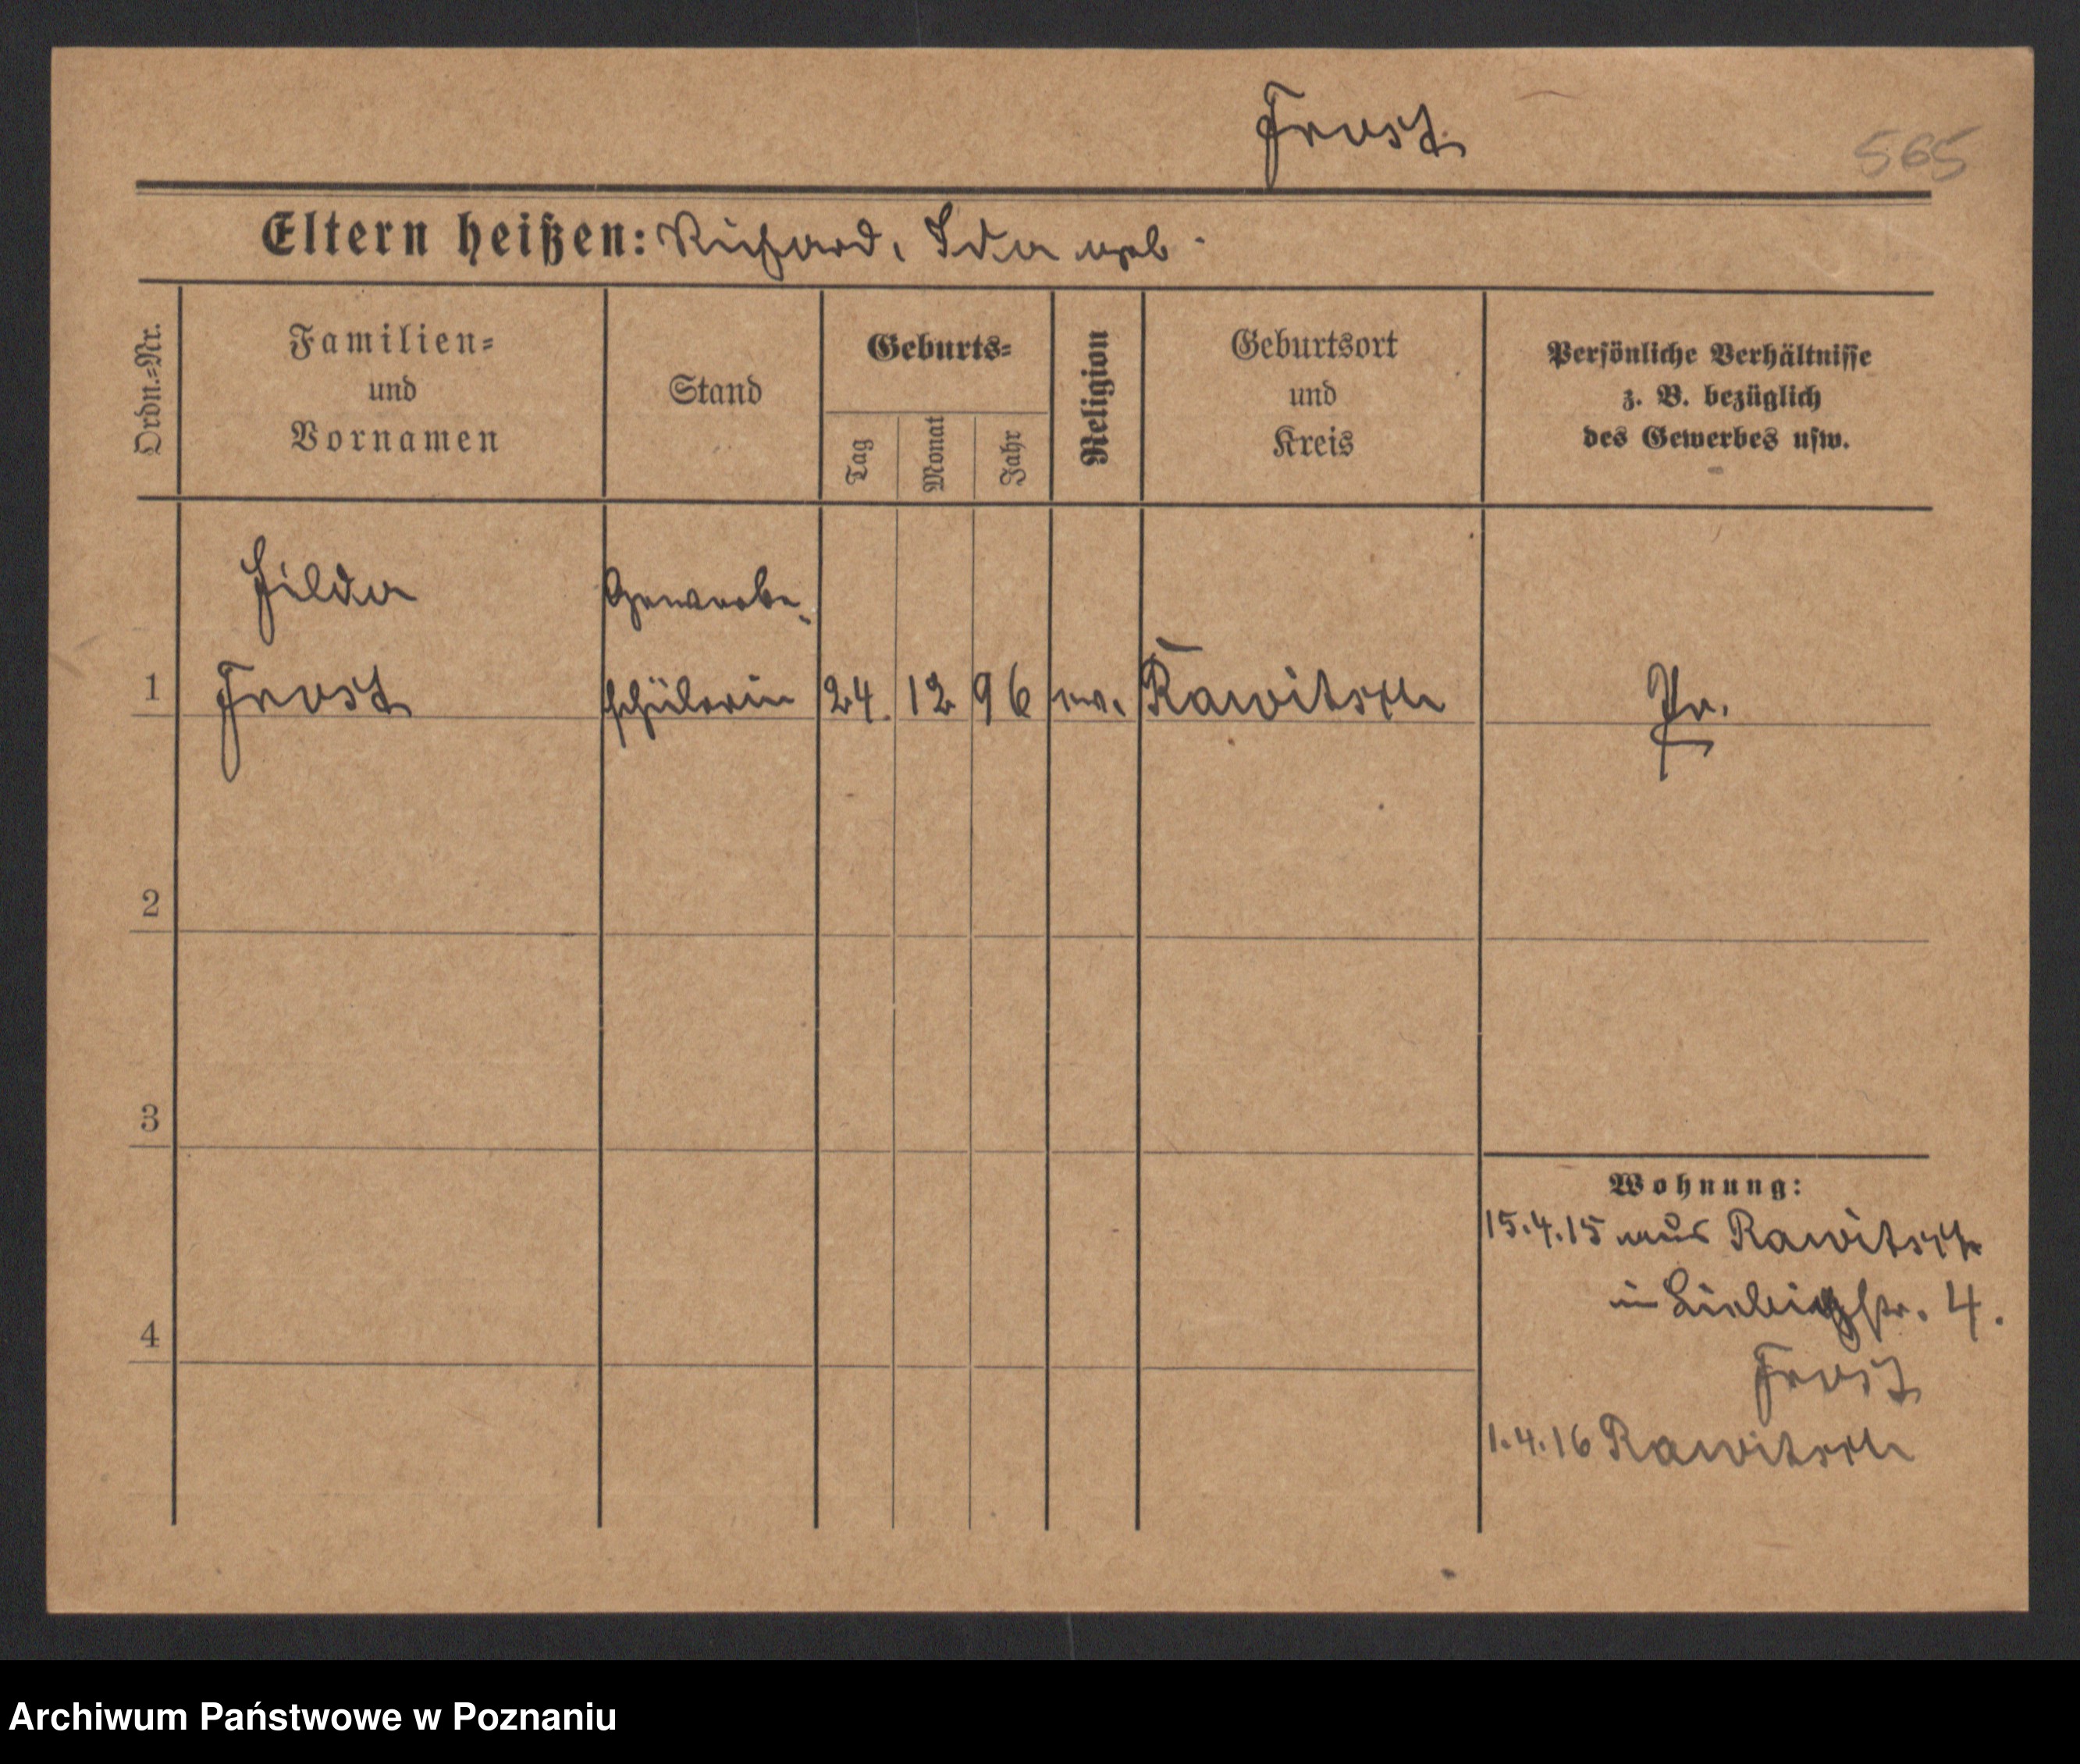 Frost
565
Eltern heißen: Richard, Ida geb.
Ordn.=Nr.
Familien=
und
Vornamen
Stand
Geburts=
Tag
Monat
Jahr
Religion
Geburtsort
und
Kreis
Persönliche Verhältnisse
z. B. bezüglich
des Gewerbes usw.
Hilda Gewerbe-
1 Frost schülerin 24. 12 96 ev. Rawitsch Pr.
2
3
Wohnung:
15.4.15 aus Rawitsch
in Liebigstr. 4.
4
Frost
1.4.16 Rawitsch
Archiwum Państwowe w Poznaniu